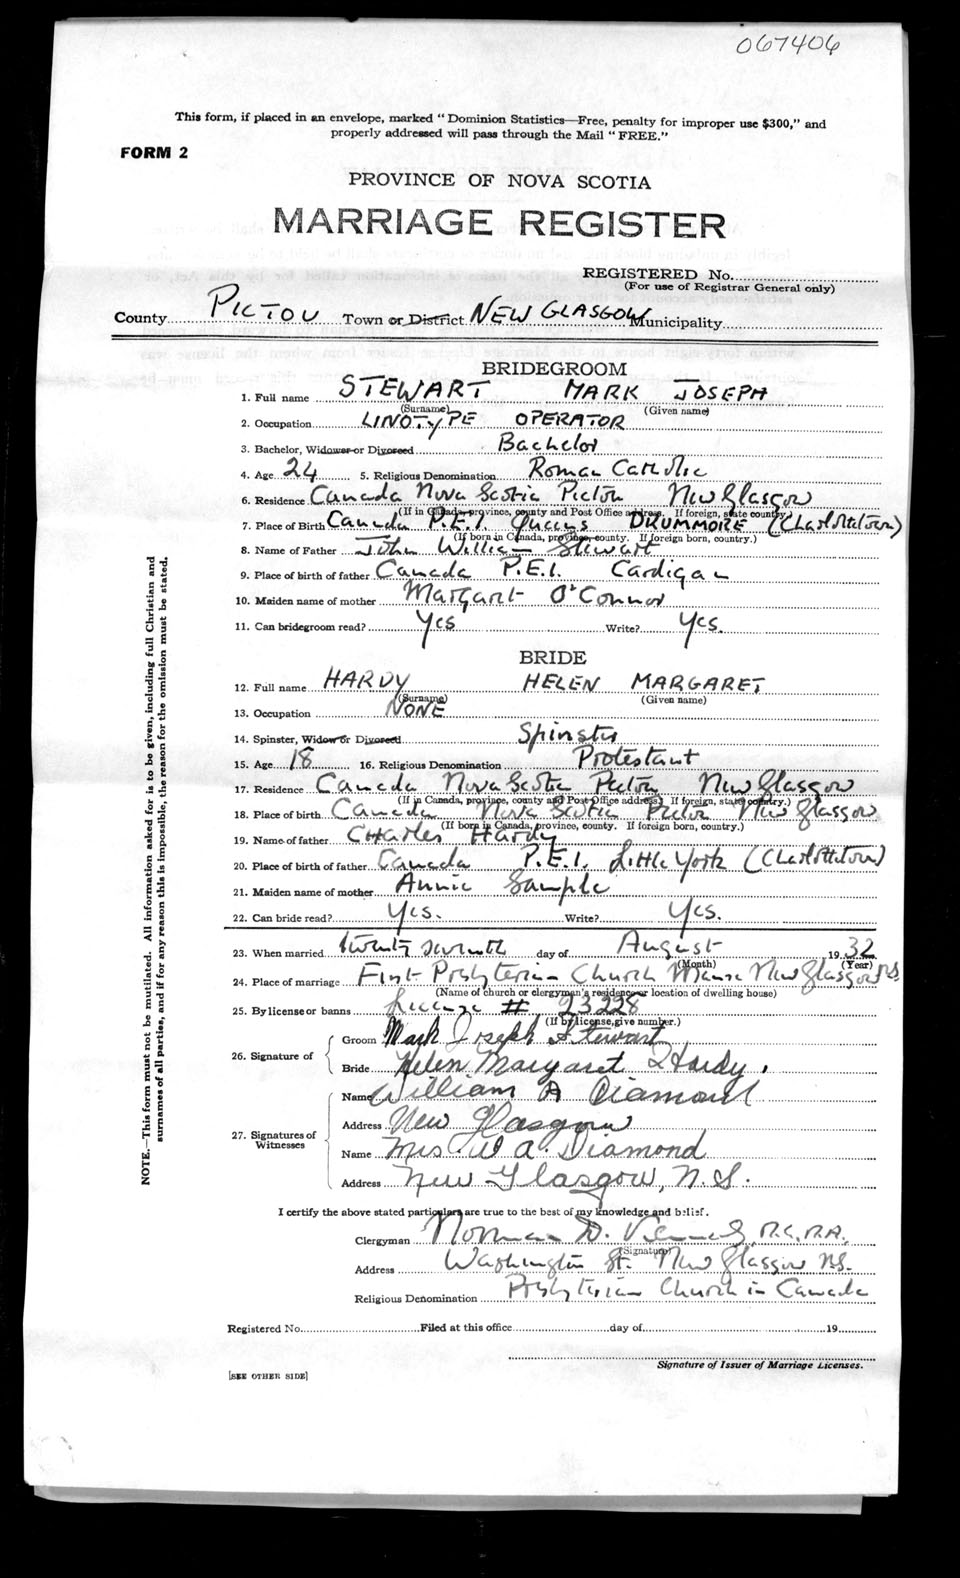 067406
This form, if placed in an envelope, marked " Dominion Statistics—Free, penalty for improper use $300," and
properly addressed will pass through the Mail " FREE."
FORM 2
PROVINCE OF NOVA SCOTIA
MARRIAGE REGISTER
REGISTERED No.
(For use of Registrar General only)
County PICTOU Town or District NEW GLASGOW Municipality
BRIDEGROOM
1. Full name STEWART MARK JOSEPH
(Surname) (Given name)
2. Occupation LINOTYPE OPERATOR
3. Bachelor, Widower or Divorced Bachelor
4. Age 24 5. Religious Denomination Roman Catholic
6. Residence Canada Nova Scotia Pictou New Glasgow
(If in Canada, province, county and Post Office address. If foreign, state country.)
7. Place of Birth Canada P.E.I. Queens DRUMMORE (Charlottetown)
(If born in Canada, province, county. If foreign born, country.)
8. Name of Father John William Stewart
9. Place of birth of father Canada P.E.I. Cardigan
10. Maiden name of mother Margaret O'Connor
11. Can bridegroom read? Yes Write? Yes.
BRIDE
12. Full name HARDY HELEN MARGARET
(Surname) (Given name)
13. Occupation NONE
14. Spinster, Widow or Divorced Spinster
15. Age 18 16. Religious Denomination Protestant
17. Residence Canada Nova Scotia Pictou New Glasgow
(If in Canada, province, county and Post Office address. If foreign, state country.)
18. Place of birth Canada Nova Scotia Pictou New Glasgow
(If born in Canada, province, county. If foreign born, country.)
19. Name of father CHARLES Hardy
20. Place of birth of father Canada P.E.I. Little York (Charlottetown)
21. Maiden name of mother Annie Sample
22. Can bride read? Yes. Write? Yes.
23. When married twenty seventh day of August 1932
(Month) (Year)
24. Place of marriage First Presbyterian Church Manse New Glasgow N.S.
(Name of church or clergyman's residence or location of dwelling house)
25. By license or banns License # 23228
(If by license, give number.)
26. Signature of
Groom Mark Joseph Stewart
Bride Helen Margaret Hardy.
27. Signatures of
Witnesses
Name William A Diamond
Address New Glasgow
Name Mrs W A. Diamond
Address New Glasgow, N.S.
I certify the above stated particulars are true to the best of my knowledge and belief.
Clergyman Norman D.
(Signature)
Address Washington St. New Glasgow N.S.
Religious Denomination Presbyterian Church in Canada
Registered No. Filed at this office day of 19
Signature of Issuer of Marriage Licenses.
[SEE OTHER SIDE]
NOTE.—This form must not be mutilated. All information asked for is to be given, including full Christian and
surnames of all parties, and if for any reason this is impossible, the reason for the omission must be stated.